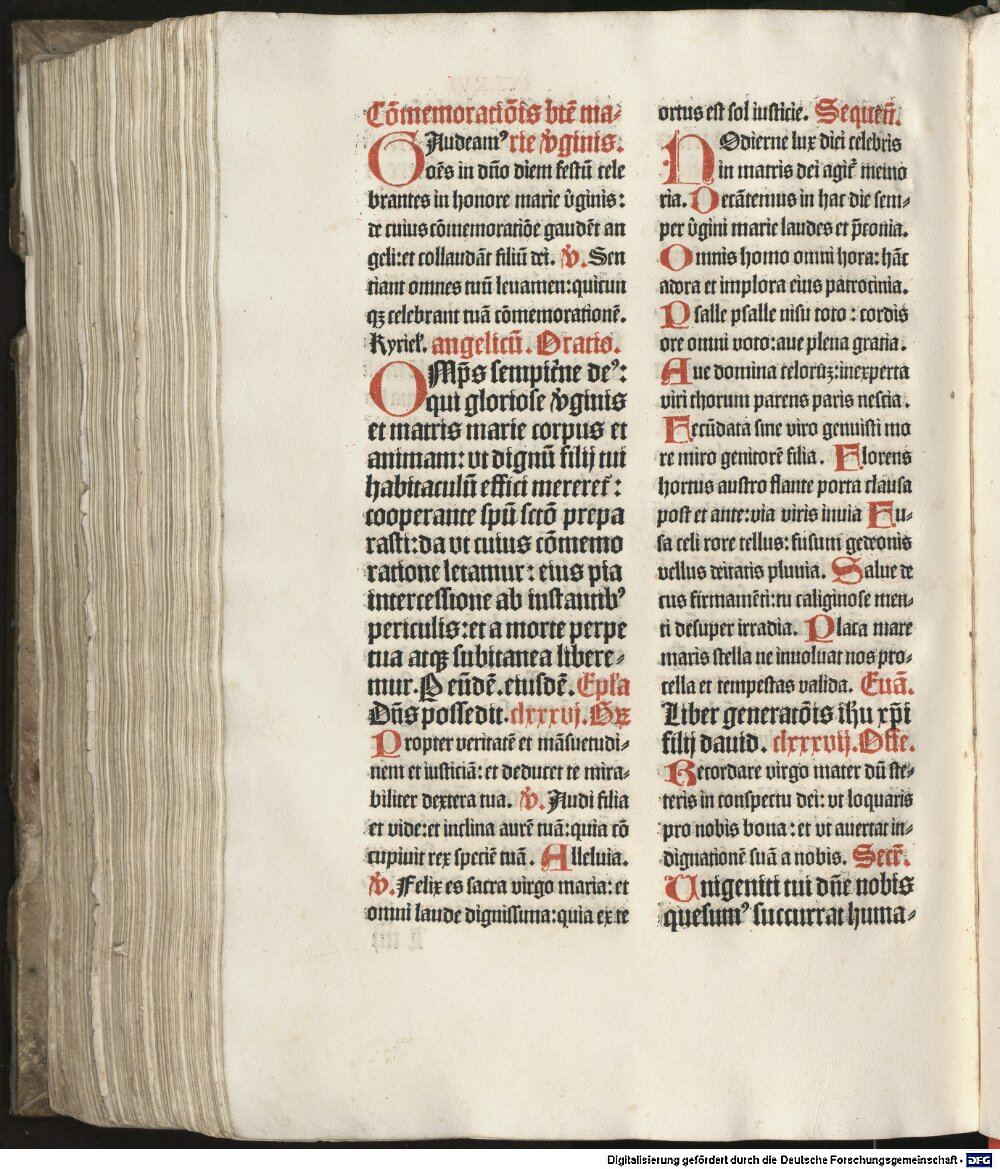 Cōmemoratiōis btē ma-
GAudeamꝰ rie v̄ginis.
oēs in dn̄o diem festū cele
brantes in honore marie v̄ginis:
de cuius cōmemoratiōe gaudēt an
geli: et collaudāt filiū dei. v̄. Sen
tiant omnes tuū leuamen: quicun
qꝫ celebrant tuā cōmemorationē.
Kyriel. angelicū. Oratio.
OMp̄s sempit̄ne deꝰ:
qui gloriose v̄ginis
et matris marie corpus et
animam: vt dignū filij tui
habitaculū effici mereret̄:
cooperante spū sctō prepa
rasti: da vt cuius cōmemo
ratione letamur: eius pia
intercessione ab instantibꝰ
periculis: et a morte perpe
tua atqꝫ subitanea libere-
mur. P eūdē. eiusdē. Epl̄a
Dn̄s possedit. clxxxvj. Gꝛꝫ
Propter veritatē et māsuetudi-
nem et iusticiā: et deducet te mira-
biliter dextera tua. v̄. Audi filia
et vide: et inclina aurē tuā: quia cō
cupiuit rex speciē tuā. Alleluia.
v̄. Felix es sacra virgo maria: et
omni laude dignissima: quia ex te
ortus est sol iusticie. Sequen̄.
HOdierne lux diei celebris
in matris dei agit̄ memo
ria. Decātemus in hac die sem-
per v̄gini marie laudes et p̄conia.
Omnis homo omni hora: hāc
adora et implora eius patrocinia.
Psalle psalle nisu toto: cordis
ore omni voto: aue plena gratia.
Aue domina celoruꝫ: inexperta
viri thorum parens paris nescia.
Fecūdata sine viro genuisti mo
re miro genitorē filia. Florens
hortus austro flante porta clausa
post et ante: via viris inuia Fu-
sa celi rore tellus: fusum gedeonis
vellus deitatis pluuia. Salue de
cus firmamēti: tu caliginose men-
ti desuper irradia. Placa mare
maris stella ne inuoluat nos pro-
cella et tempestas valida. Euā.
Liber generatōis ih̄u xp̄i
filij dauid. clxxxvij. Offe.
Recordare virgo mater dū ste-
teris in conspectu dei: vt loquaris
pro nobis bona: et vt auertat in-
dignationē suā a nobis. Secr̄.
Unigeniti tui dn̄e nobis
quesumꝰ succurrat huma-
Digitalisierung gefördert durch die Deutsche Forschungsgemeinschaft - DFG